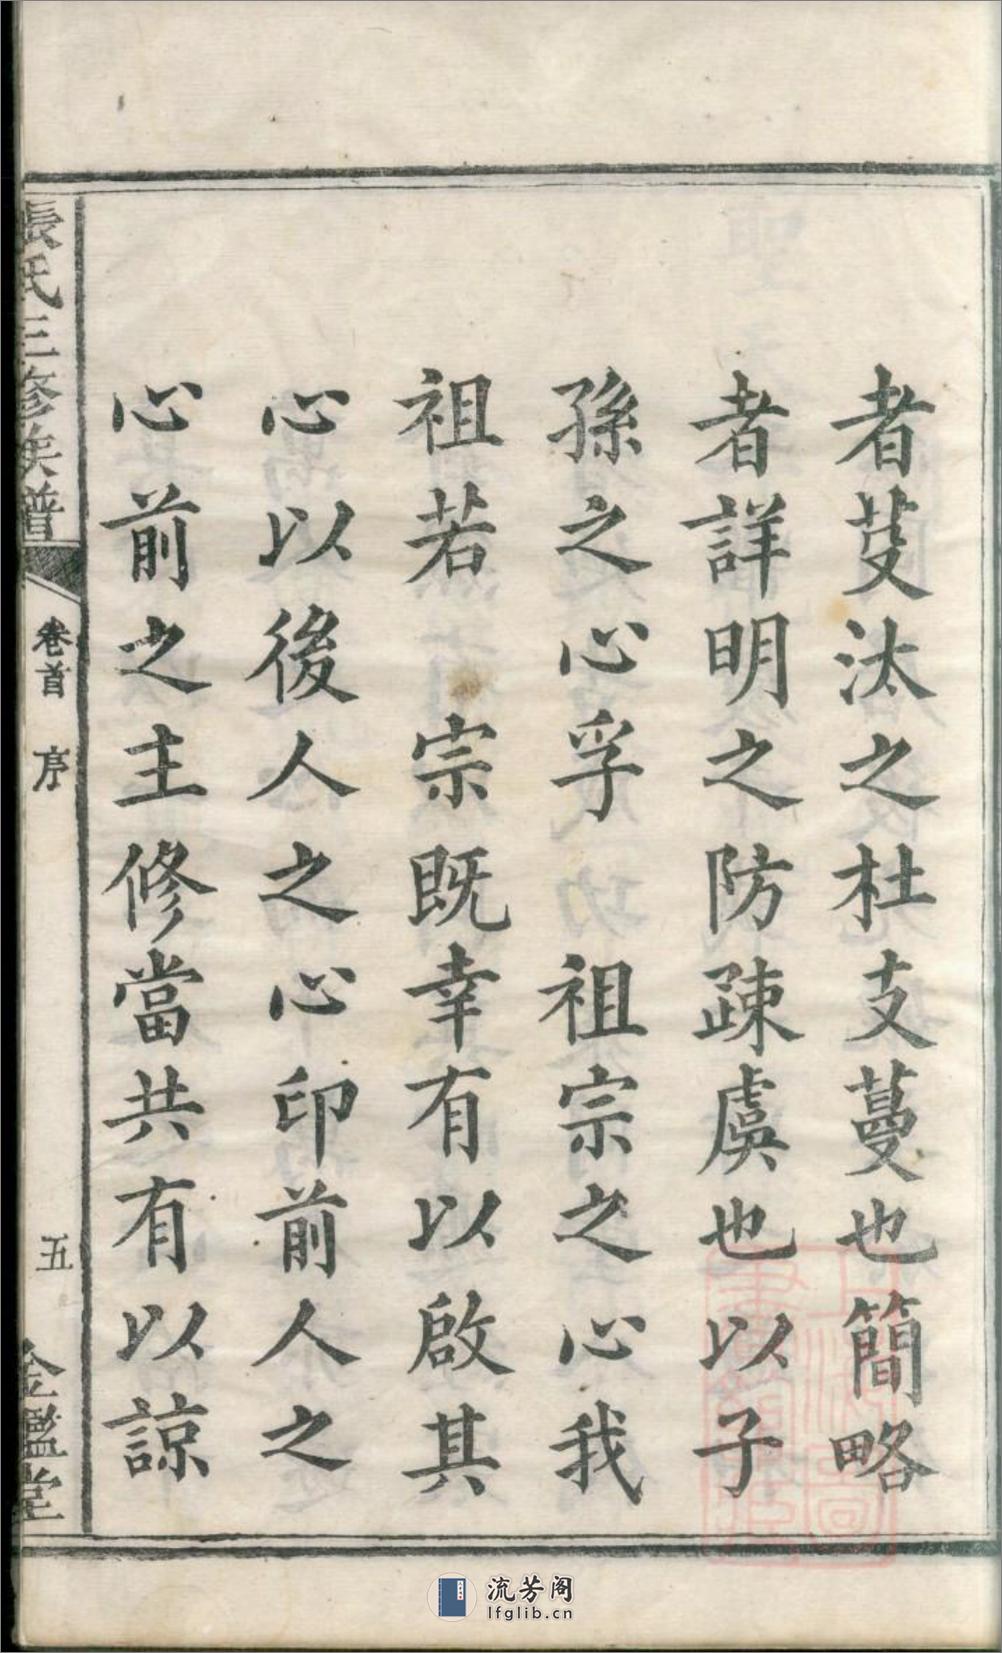 者芟汰之杜支蔓也簡略
者詳明之防疎虞也以子
孫之心孚 祖宗之心我
祖若 宗既幸有以啟其
心以後人之心印前人之
心前之主修當共有以諒
張氏三修族譜
卷首 序
五
金鑑堂
流芳阁
lfglib.cn